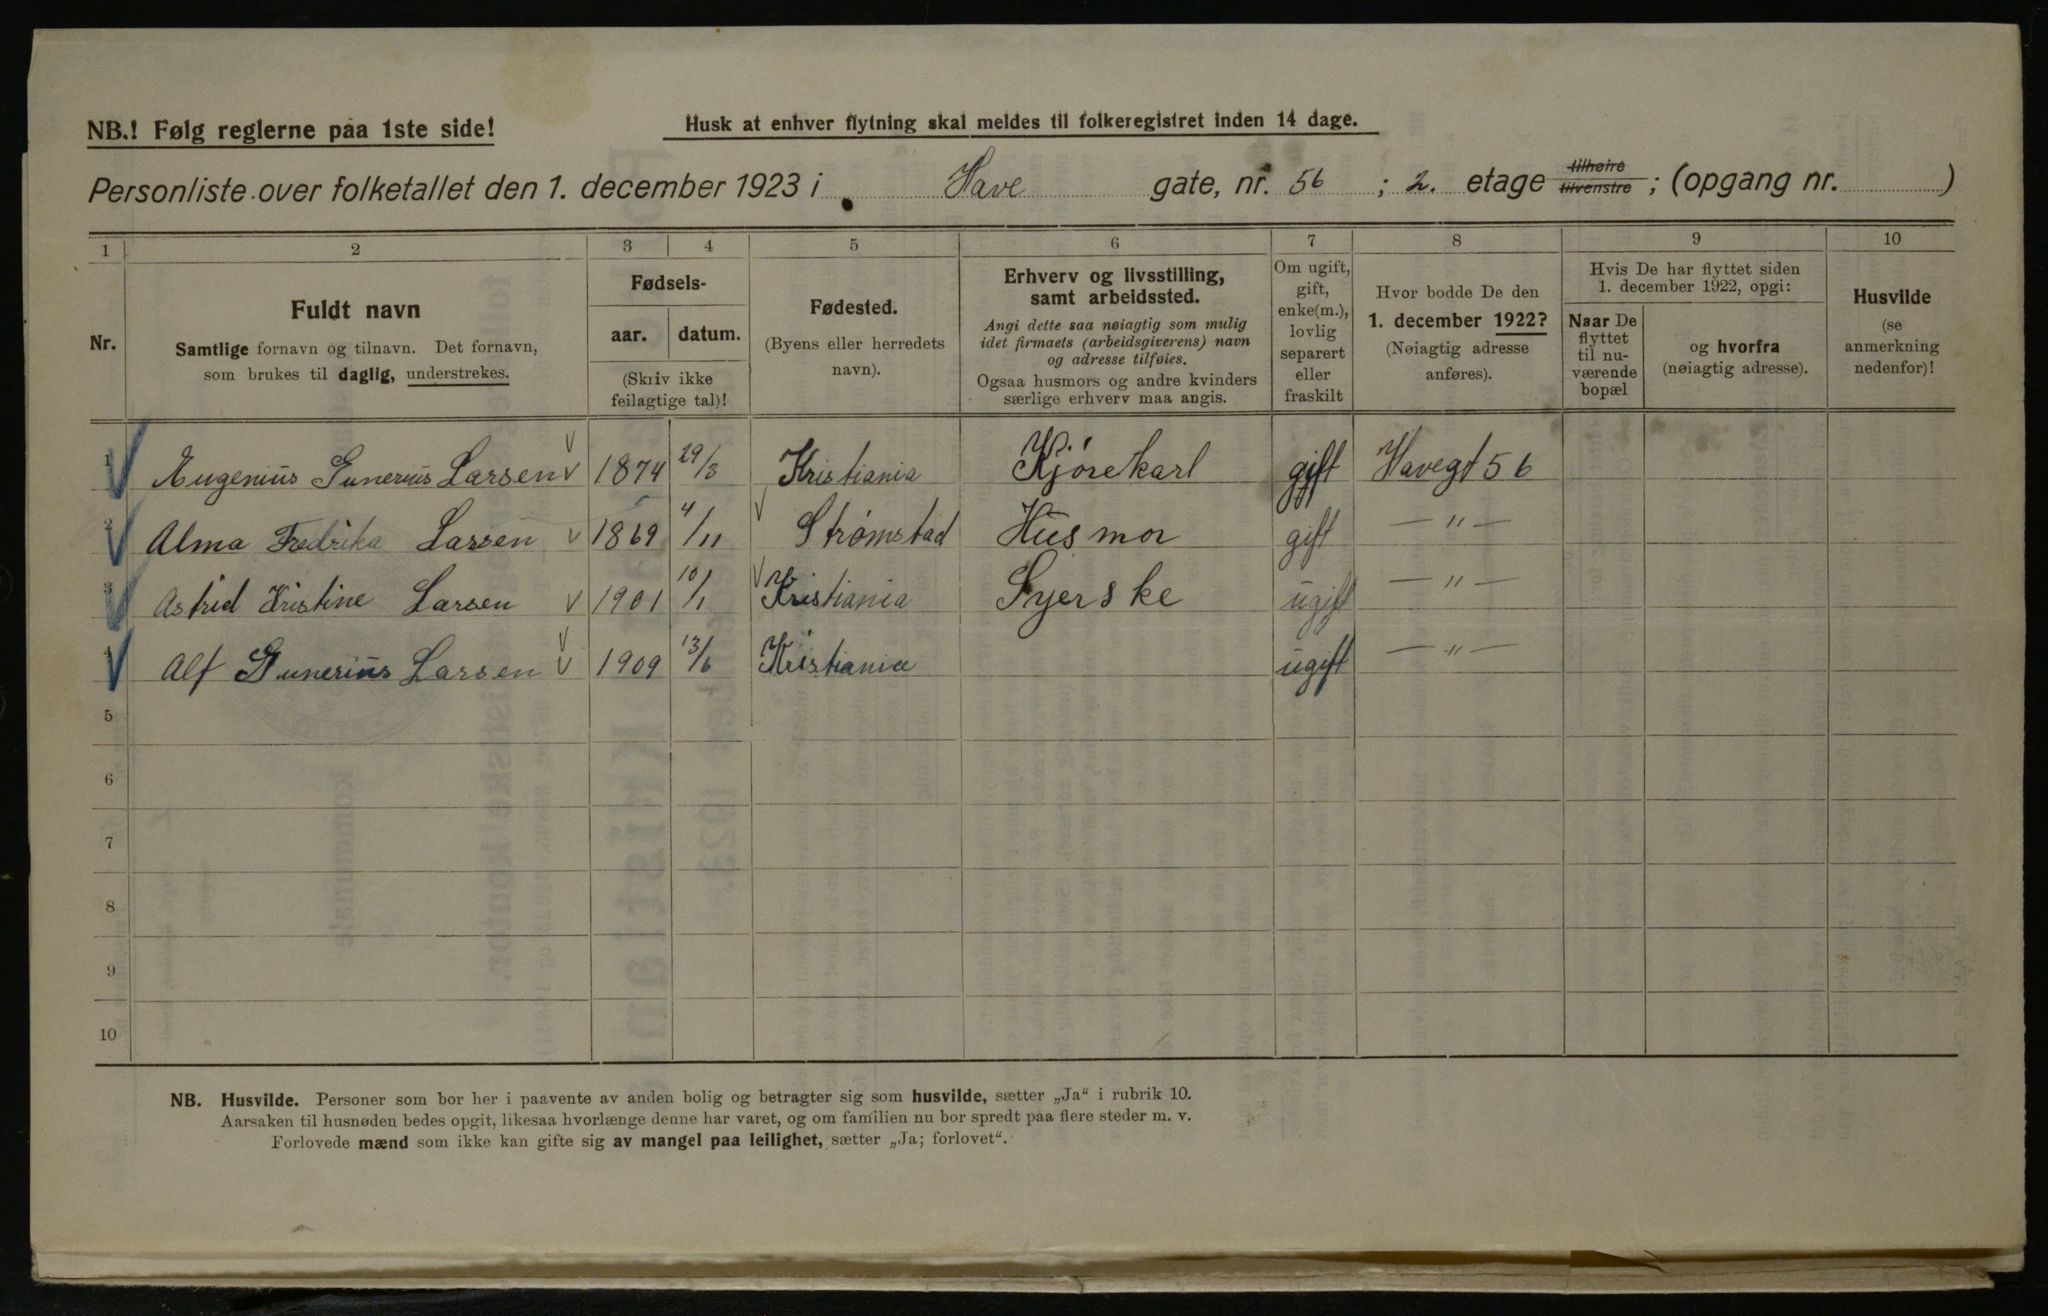 NB.! Følg reglerne paa 1ste side!
Husk at enhver flytning skal meldes til folkeregistret inden 14 dage.
Personliste over folketallet den 1. december 1923 i Have gate, nr. 56 ; 2. etage tilhøire tilvenstre ; (opgang nr. )
1 2 3 4 5 6 7 8 9 10
Nr.
Fuldt navn
Samtlige fornavn og tilnavn. Det fornavn,
som brukes til daglig, understrekes.
Fødsels-
aar. datum.
(Skriv ikke
feilagtige tal)!
Fødested.
(Byens eller herredets
navn).
Erhverv og livsstilling,
samt arbeidssted.
Angi dette saa nøiagtig som mulig
idet firmaets (arbeidsgiverens) navn
og adresse tilføies.
Ogsaa husmors og andre kvinders
særlige erhverv maa angis.
Om ugift,
gift,
enke(m.),
lovlig
separert
eller
fraskilt
Hvor bodde De den
1. december 1922?
(Nøiagtig adresse
anføres).
Hvis De har flyttet siden
1. december 1922, opgi:
Naar De
flyttet
til nu-
værende
bopæl
og hvorfra
(nøiagtig adresse).
Husvilde
(se
anmerkning
nedenfor)!
1 Eugenius Gunerius Larsen 1874 29/3 Kristiania Kjørekarl gift Havegt 56
2 Alma Fredrika Larsen 1869 4/11 Strømstad Husmor gift — " —
3 Astrid Kristine Larsen 1901 10/1 Kristiania Syerske ugift — " —
4 Alf Gunerius Larsen 1909 13/6 Kristiania ugift — " —
5
6
7
8
9
10
NB. Husvilde. Personer som bor her i paavente av anden bolig og betragter sig som husvilde, sætter „Ja“ i rubrik 10.
Aarsaken til husnøden bedes opgit, likesaa hvorlænge denne har varet, og om familien nu bor spredt paa flere steder m. v.
Forlovede mænd som ikke kan gifte sig av mangel paa leilighet, sætter „Ja; forlovet“.